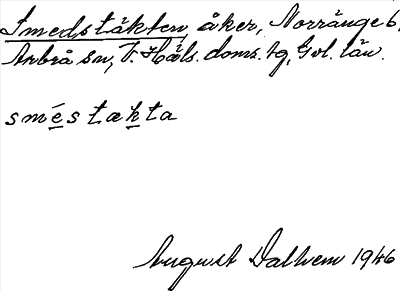 Smedstäkten, åker, Norränge 6,
Arbrå sn, V. Häls. doms. tg, Gvl. län.
sméstækta
August Dalhem 1946